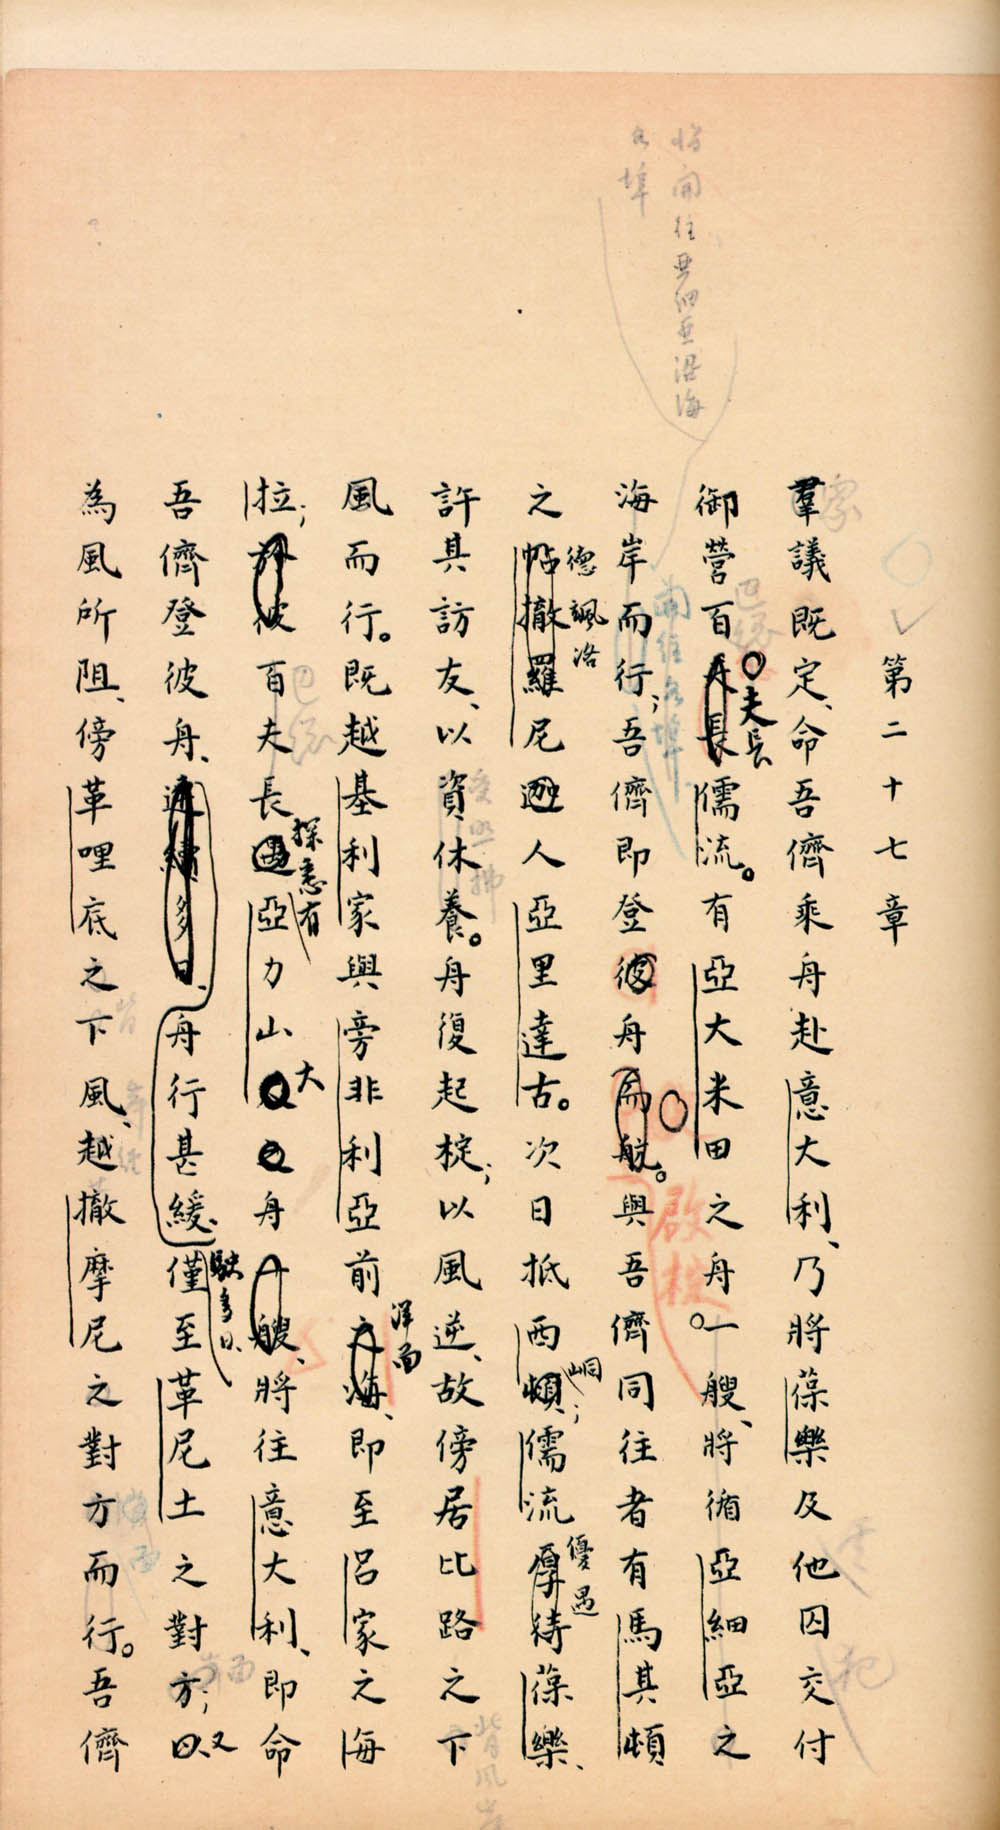 第二十七章
羣議既定、命吾儕乘舟赴意大利、乃將葆樂及他囚交付
御營百夫長儒流。有亞大米田之舟。一艘、將循亞細亞之
海岸而行；吾儕即登彼舟而航。與吾儕同往者有馬其頓
啟椗
之帖撒羅尼迦人亞里達古。次日抵西頓；儒流厚待葆樂、
德諷洛
峒
優遇
許其訪友、以資休養。舟復起椗；以風逆、故傍居比路之下
風而行。既越基利家與旁非利亞前之海、即至呂家之海
洋面
拉；於彼百夫長遇亞力山大舟一艘、將往意大利、即命
探悉有
吾儕登彼舟、連續多日、舟行甚緩、僅至革尼土之對方；又
駛多日、
為風所阻、傍革哩底之下風、越撒摩尼之對方而行。吾儕
將開往亞細亞沿海
各埠
開往各埠
背風